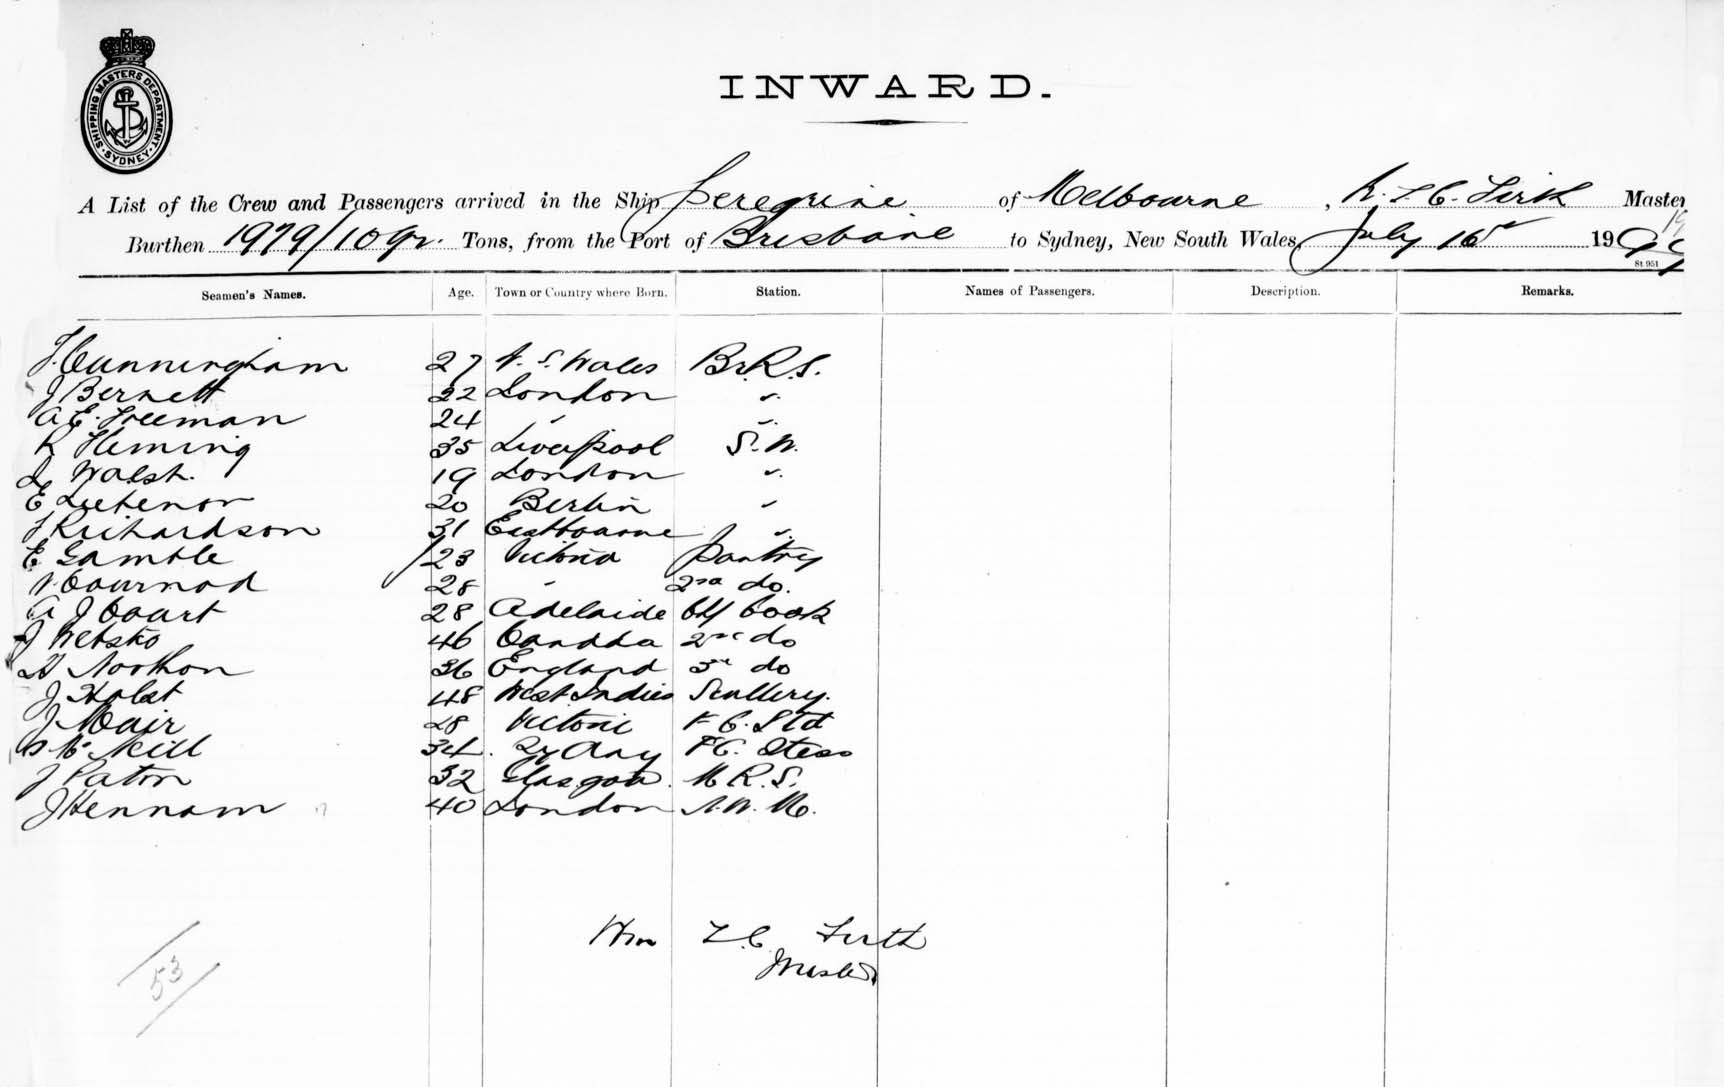 SHIPPING MASTERS DEPARTMENT. SYDNEY.
INWARD.
A List of the Crew and Passengers arrived in the Ship Peregrine of Melbourne, W. F. C. Firth Master
Burthen 1979/10 Qr. Tons, from the Port of Brisbane to Sydney, New South Wales, July 16 19
St 951
Seamen's Names. Age. Town or Country where Born. Station. Names of Passengers. Description. Remarks.
J. Cunningham 27 N. S. Wales B.R.S.
J Bernett 22 London "
A. E. Freeman 24 " "
R Fleming 35 Liverpool S. W.
J Walsh. 19 London "
E 20 Berlin "
J Richardson 31 Eastbourne "
E Gamble 23 Victoria Pantry
28 " 2nd do.
A J Court 28 Adelaide Chf Cook
J 46 Canada 2nd do
H 36 England 3rd do
J Holst 48 West Indies Scullery.
J Mair 28 Victoria F C. Std
McNeill 34. F.C. Stess
J Paton 32 Glasgow. M R. S.
J Hennam 40 London N. W. M.
Wm F. C. Firth
Master
53